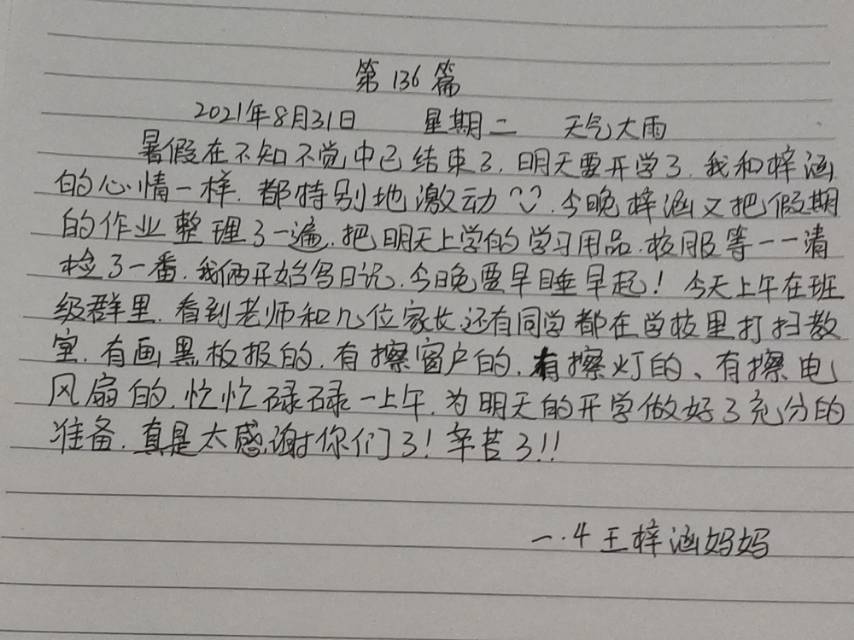 第136篇
2021年8月31日 星期二 天气大雨
暑假在不知不觉中已结束了,明天要开学了,我和梓涵
的心情一样,都特别地激动,今晚梓涵又把假期
的作业整理了一遍,把明天上学的学习用品,校服等一一清
检了一番,我俩开始写日记,今晚要早睡早起!今天上午在班
级群里,看到老师和几位家长还有同学都在学校里打扫教
室,有画黑板报的,有擦窗户的,有擦灯的、有擦电
风扇的,忙忙碌碌一上午,为明天的开学做好了充分的
准备,真是太感谢你们了!辛苦了!!
一.4王梓涵妈妈